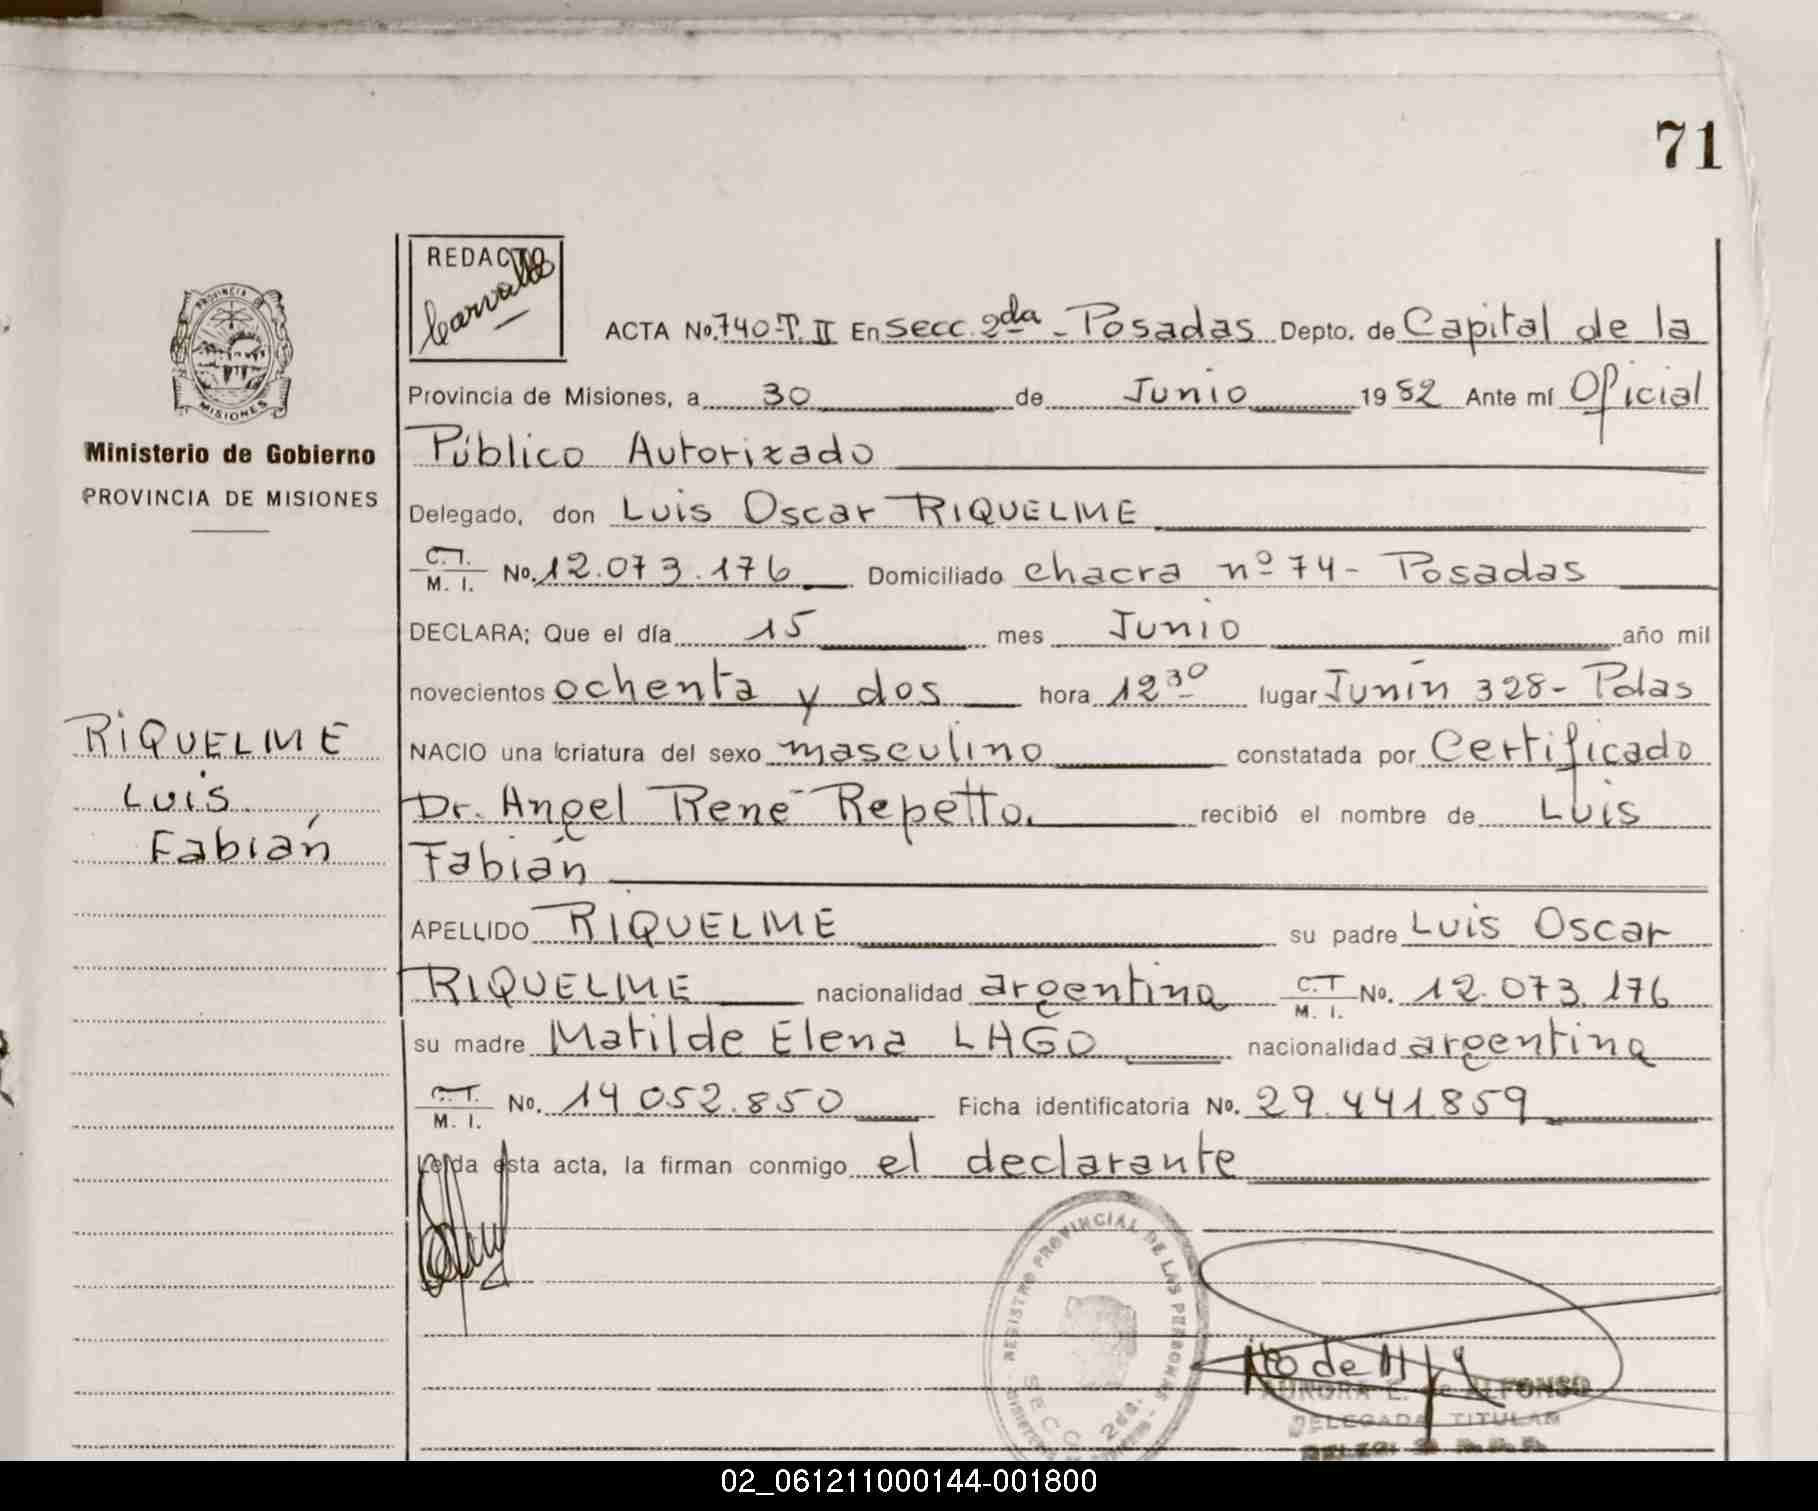 71
REDACTO
Carvallo
PROVINCIA DE
MISIONES
Ministerio de Gobierno
PROVINCIA DE MISIONES
RIQUELME
Luis
Fabián
ACTA No. 740-T. II En Secc. 2da - Posadas Depto. de Capital de la
Provincia de Misiones, a 30 de Junio 19 82 Ante mí Oficial
Público Autorizado
Delegado, don Luis Oscar RIQUELME
C.I.
M. I. No. 12.073.176 Domiciliado chacra nº 74 - Posadas
DECLARA; Que el día 15 mes Junio año mil
novecientos ochenta y dos hora 12 30 lugar Junín 328 - Pdas
NACIO una criatura del sexo masculino constatada por Certificado
Dr. Angel René Repetto. recibió el nombre de Luis
Fabián
APELLIDO RIQUELME su padre Luis Oscar
RIQUELME nacionalidad argentina C.I
M. I. No. 12.073.176
su madre Matilde Elena LAGO nacionalidad argentina
C.I.
M. I. No. 14.052.850 Ficha identificatoria No. 29.441.859
Leída esta acta, la firman conmigo el declarante
REGISTRO PROVINCIAL DE LAS PERSONAS
SECC. 2da.
AURORA E. de ALFONSO
DELEGADA TITULAR
02_061211000144-001800